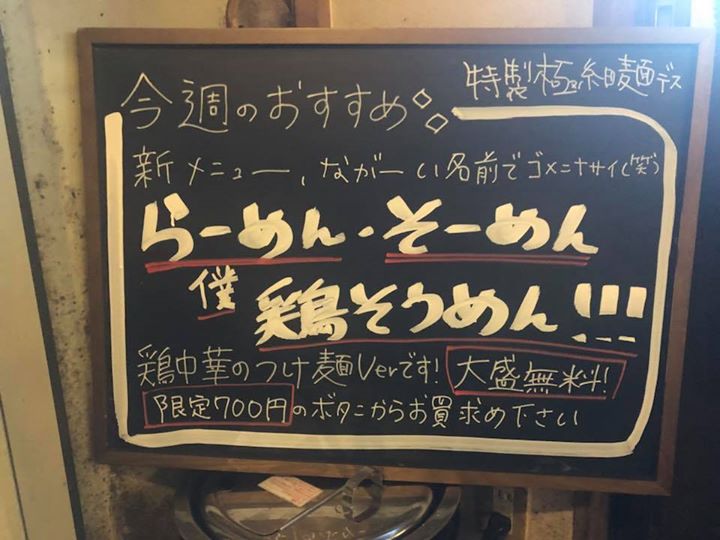 特製極細麺デス
今週のおすすめ
新メニュー、ながーい名前でゴメンナサイ(笑)
らーめん・そーめん
僕 鶏そうめん!!!
鶏中華のつけ麺Verです! 大盛無料!
限定700円のボタンからお買求め下さい